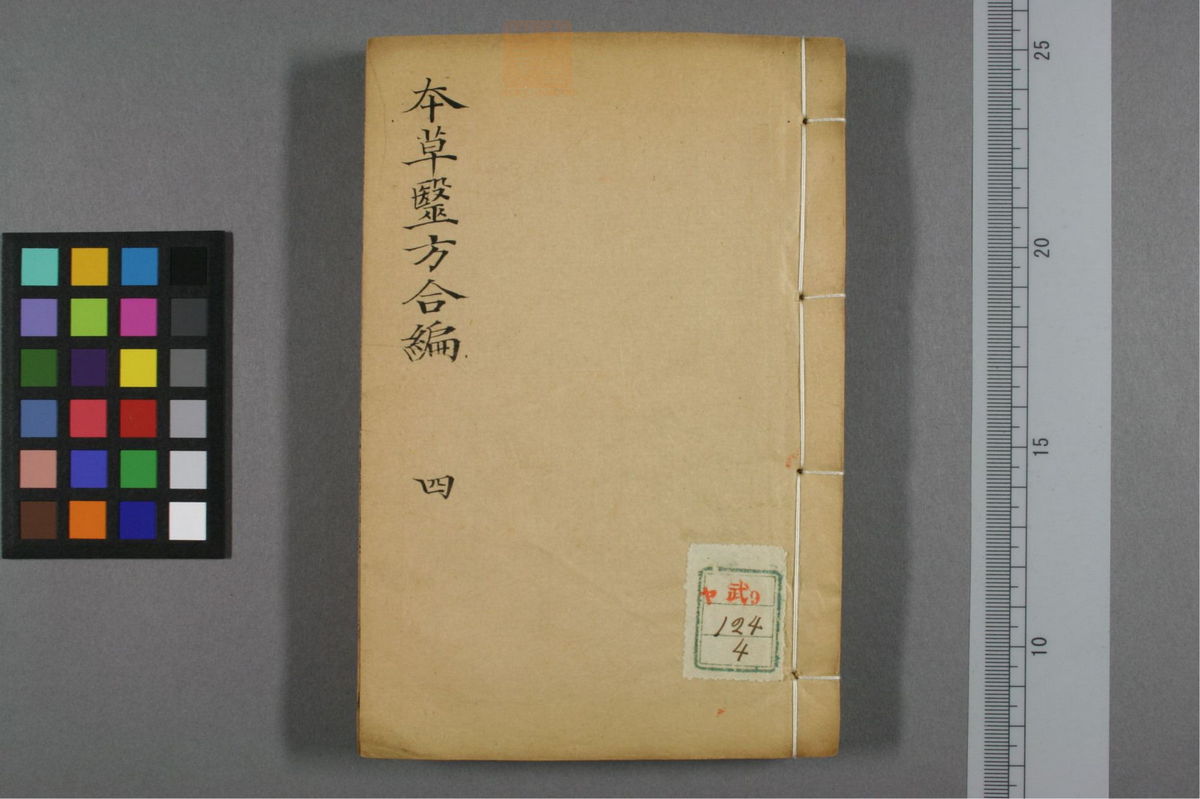 本草毉方合編
四
ヤ 武9
124
4
25
20
15
10